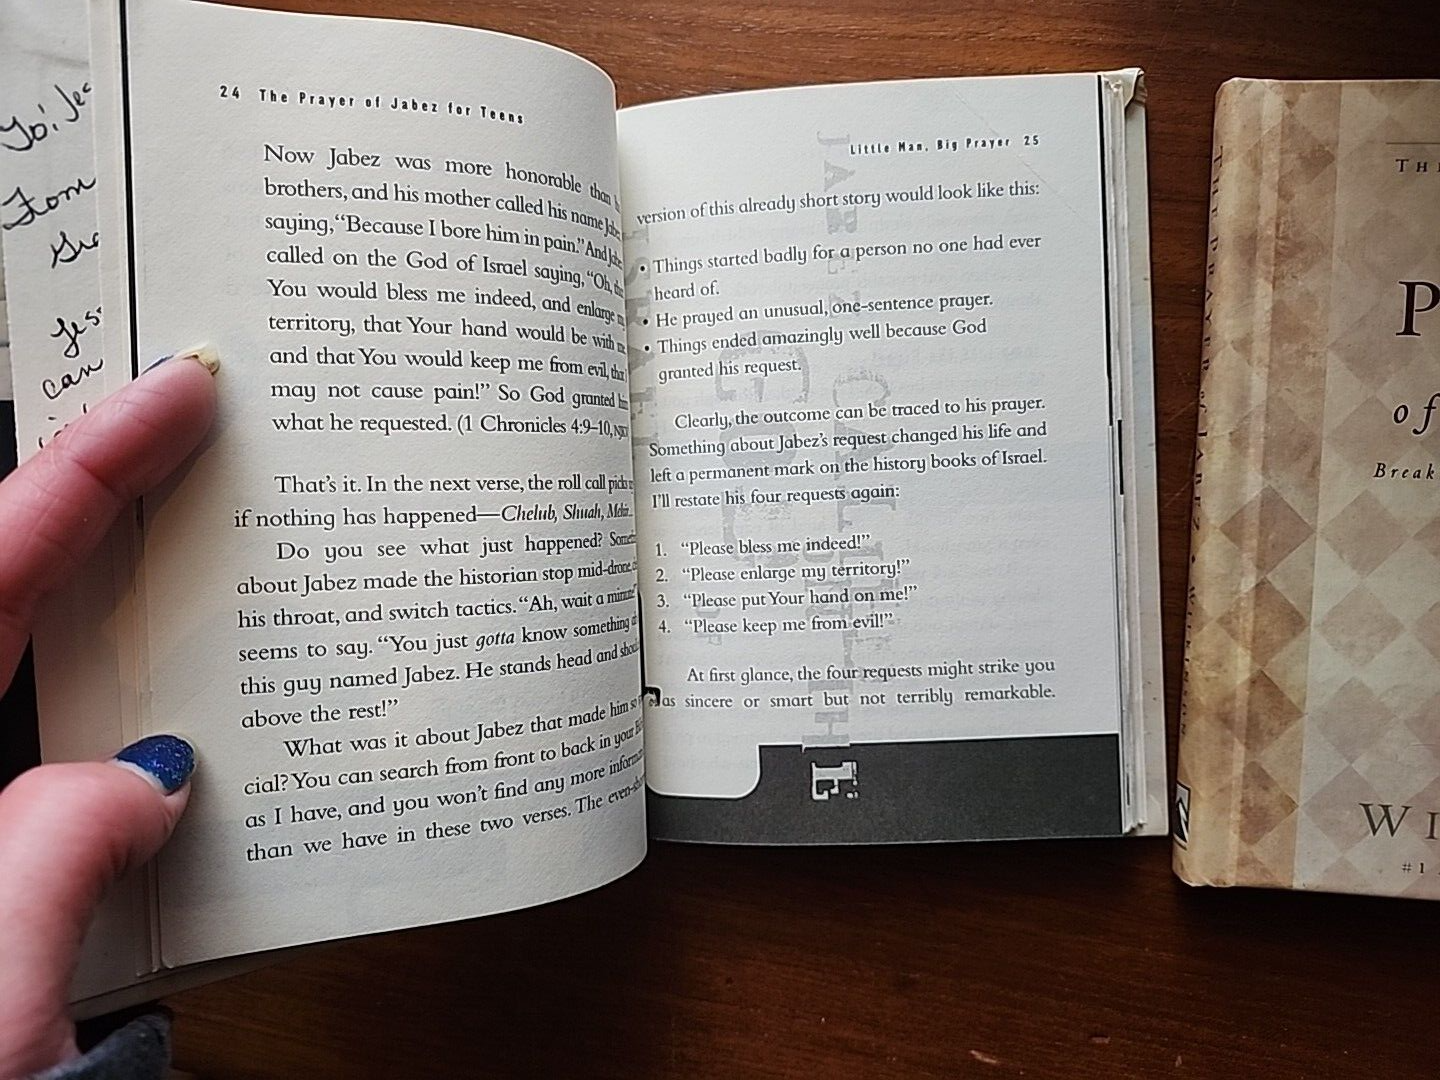 Yo! Jes
From
Gra
Jes
can
24 The Prayer of Jabez for Teens
Now Jabez was more honorable than
brothers, and his mother called his name
saying, “Because I bore him in pain.” And
called on the God of Israel saying, “Oh,
You would bless me indeed, and enlarge
territory, that Your hand would be with
and that You would keep me from evil,
may not cause pain!” So God granted
what he requested. (1 Chronicles 4:9–10,
That’s it. In the next verse, the roll call picks
if nothing has happened—Chelub, Shuah,
Do you see what just happened?
about Jabez made the historian stop mid-drone,
his throat, and switch tactics. “Ah, wait a
seems to say. “You just gotta know something
this guy named Jabez. He stands head and
above the rest!”
What was it about Jabez that made him so
cial? You can search from front to back in your
as I have, and you won’t find any more
than we have in these two verses. The
Little Man, Big Prayer 25
version of this already short story would look like this:
• Things started badly for a person no one had ever
heard of.
• He prayed an unusual, one-sentence prayer.
• Things ended amazingly well because God
granted his request.
Clearly, the outcome can be traced to his prayer.
Something about Jabez’s request changed his life and
left a permanent mark on the history books of Israel.
I’ll restate his four requests again:
1. “Please bless me indeed!”
2. “Please enlarge my territory!”
3. “Please put Your hand on me!”
4. “Please keep me from evil!”
At first glance, the four requests might strike you
as sincere or smart but not terribly remarkable.
THE PRAYER of JABEZ WILKINSON
TH
P
of
Break
WI
#1